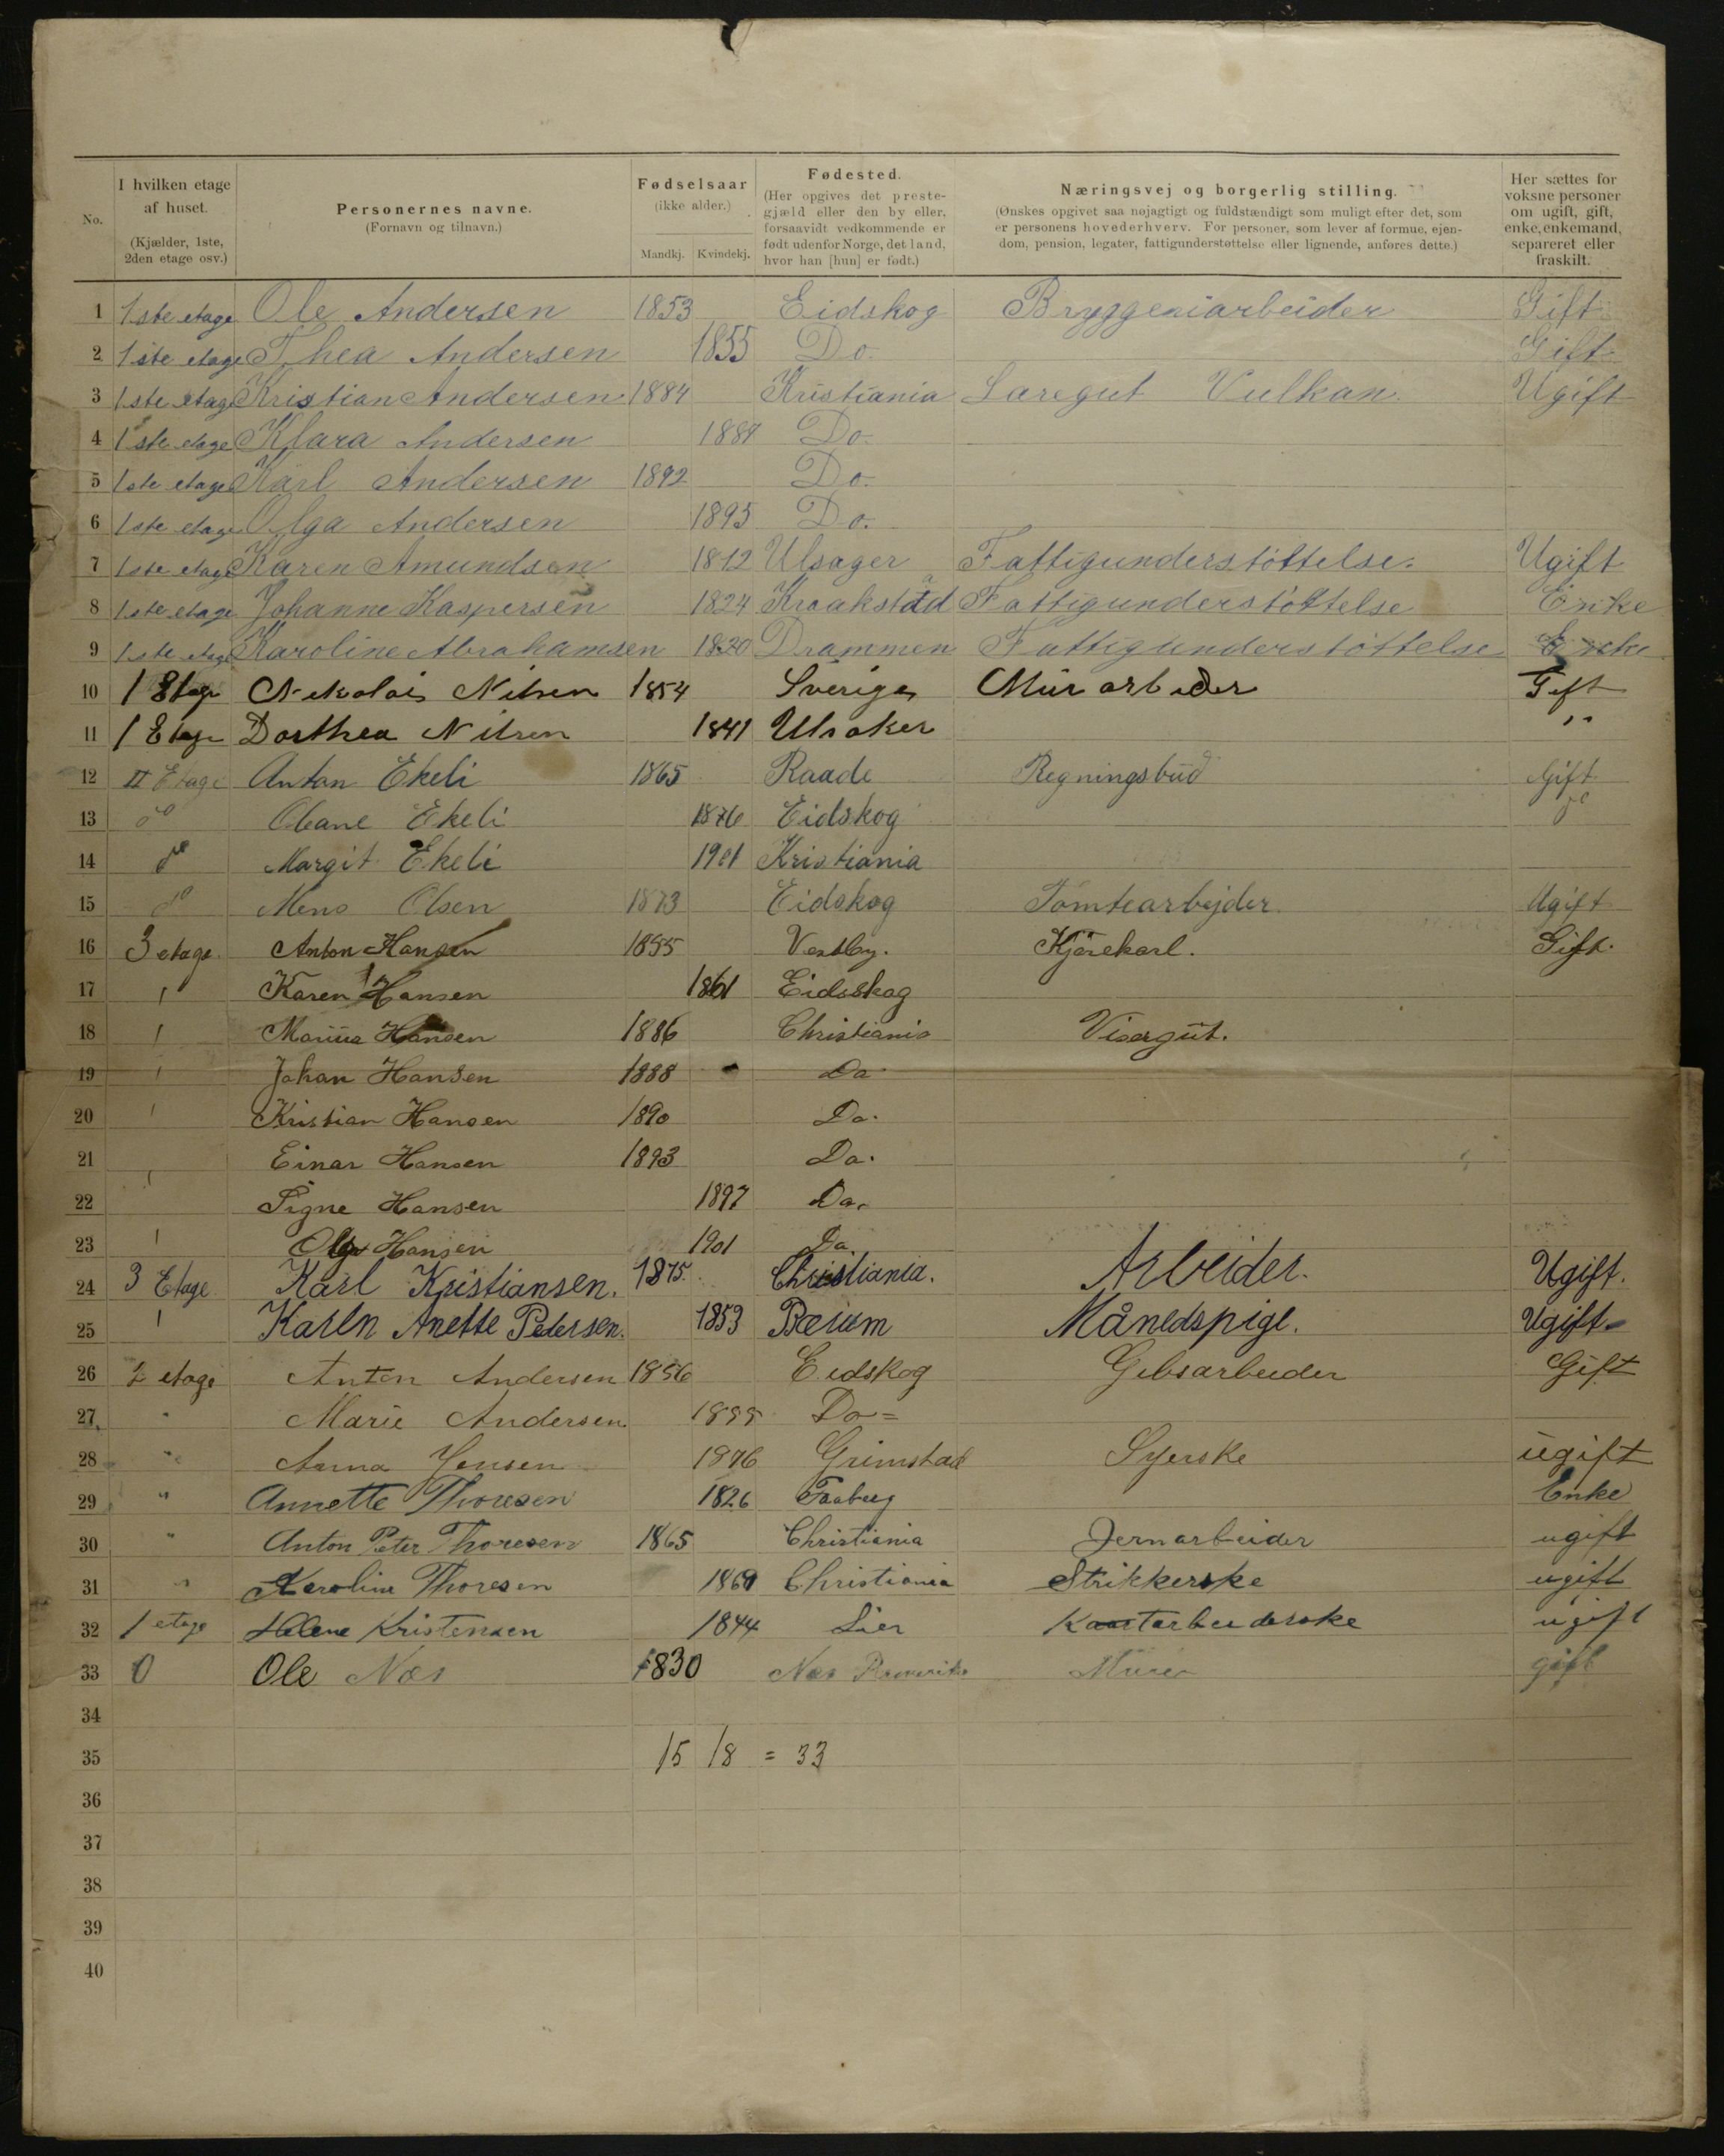 No.
I hvilken etage af huset. (Kjælder, 1ste, 2den etage osv.)
Personernes navne. (Fornavn og tilnavn.)
Fødselsaar (ikke alder.) Mandkj. Kvindekj.
Fødested. (Her opgives det prestegjæld eller den by eller, forsaavidt vedkommende er født udenfor Norge, det land, hvor han [hun] er født.)
Næringsvej og borgerlig stilling. (Ønskes opgivet saa nøjagtigt og fuldstændigt som muligt efter det, som er personens hovederhverv. For personer, som lever af formue, ejendom, pension, legater, fattigunderstøttelse eller lignende, anføres dette.)
Her sættes for voksne personer om ugift, gift, enke, enkemand, separeret eller fraskilt.
1 1ste etage Ole Andersen 1853 Eidskog Bryggeriarbeider Gift
2 1ste etage Thea Andersen 1855 Do. Gift
3 1ste etage Kristian Andersen 1884 Kristiania Læregut Vulkan. Ugift
4 1ste etage Klara Andersen 1887 Do.
5 1ste etage Karl Andersen 1892 Do.
6 1ste etage Olga Andersen 1895 Do.
7 1ste etage Karen Amundsen 1812 Ulsager Fattigunderstöttelse. Ugift
8 1ste etage Johanne Kaspersen 1824 Kraakstad Fattigunderstöttelse Enke
9 1ste etage Karoline Abrahamsen 1820 Drammen Fattigunderstöttelse Enke
10 1 Etage Nikolai Nilsen 1854 Sverige Mur arbeider Gift
11 1 Etage Dorthea Nilsen 1841 Ulsaker "
12 II Etage Anton Ekeli 1865 Raade Regningsbud Gift
13 do Oleane Ekeli 1876 Eidskog do
14 do Margit Ekeli 1901 Kristiania
15 do Olsen 1873 Eidskog Tomtearbejder. Ugift
16 3 etage. Anton Hansen 1855 Vestby. Kjörekarl. Gift.
17 " Karen Hansen 1861 Eidsskog
18 " Marius Hansen 1886 Christiania Visergut.
19 " Johan Hansen 1888 Do
20 " Kristian Hansen 1890 Do.
21 Einar Hansen 1893 Do.
22 " Signe Hansen 1897 Do.
23 " Olga Hansen 1901 Do
24 3 Etage Karl Kristiansen. 1875. Christiania. Arbeider. Ugift.
25 " Karen Anette Petersen. 1853 Bærum Månedspige. Ugift.
26 2 etage Anton Andersen 1856 Eidskog Gibsarbeider Gift
27 " Marie Andersen. 1855 Do =
28 " Anna Jensen 1876 Grimstad Syerske ugift
29 " Annette Thoresen 1826 Faaberg Enke
30 " Anton Peter Thoresen 1865 Christiania Jernarbeider ugift
31 " Karoline Thoresen 1869 Christiania Strikkerske ugift
32 1 etage Helene Kristensen 1844 Lier ugift
33 0 Ole Næs 1830 Næs Romerike Murer gift
34
35 15 18 = 33
36
37
38
39
40